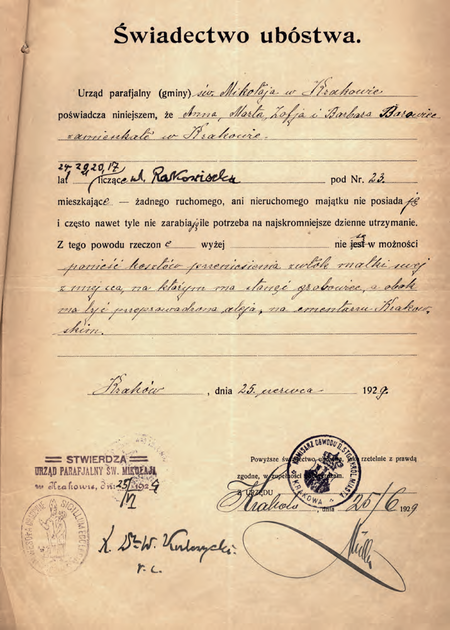 Świadectwo ubóstwa.
Urząd parafjalny (gminy) św. Mikołaja w Krakowie
poświadcza niniejszem, że Anna, Marta, Zofja i Barbara Barowiec
zamieszkałe w Krakowie
24, 22, 20, 17
lat liczące ul. Rakowicka pod Nr. 23.
mieszkające — żadnego ruchomego, ani nieruchomego majątku nie posiadają
i często nawet tyle nie zarabiają ile potrzeba na najskromniejsze dzienne utrzymanie.
Z tego powodu rzeczone wyżej nie są w możności
ponieść kosztów przeniesienia zwłok matki swej
z miejsca, na którym ma stanąć grobowiec, a obok
ma być przeprowadzona aleja, na cmentarzu Krakow-
skim.
Kraków, dnia 25. czerwca 1929.
STWIERDZA
URZĄD PARAFJALNY ŚW. MIKOŁAJA
w Krakowie, dn. 25/VI 1929
Powyższe świadectwo rzetelnie z prawdą
zgodne, w zupełności
Z URZĘDU
KRAKOWA
Kraków dnia 25/6 1929
X. Dr W.
r. c.